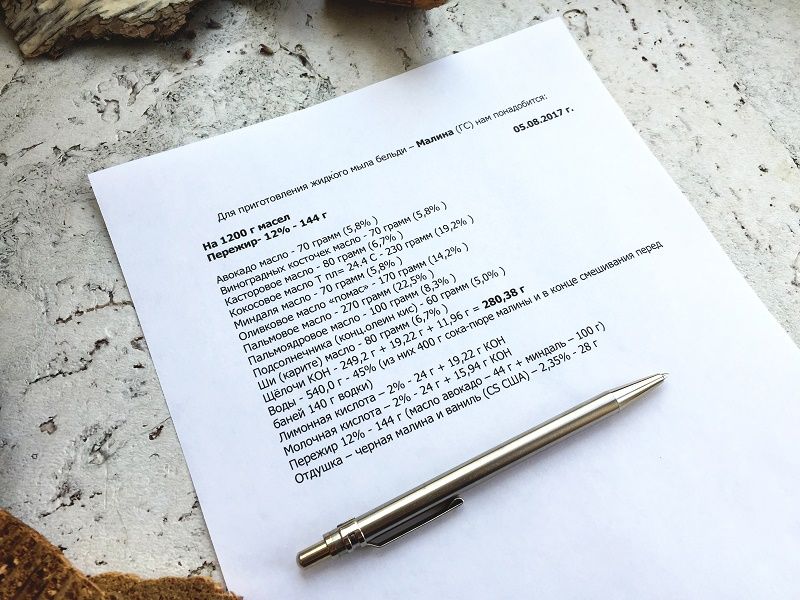 Для приготовления жидкого мыла бельди – Малина (ГС) нам понадобится:
05.08.2017 г.
На 1200 г масел
Пережир- 12% - 144 г
Авокадо масло - 70 грамм (5,8% )
Виноградных косточек масло - 70 грамм (5,8% )
Касторовое масло - 80 грамм (6,7% )
Кокосовое масло Т пл= 24.4 С - 230 грамм (19,2% )
Миндаля масло - 70 грамм (5,8% )
Оливковое масло «помас» - 170 грамм (14,2% )
Пальмовое масло - 270 грамм (22,5% )
Пальмоядровое масло - 100 грамм (8,3% )
Подсолнечника (конц.олеин кис) - 60 грамм (5,0% )
Ши (карите) масло - 80 грамм (6,7% )
Щёлочи KOH - 249,2 г + 19,22 г + 11,96 г = 280,38 г
Воды - 540,0 г - 45% (из них 400 г сока-пюре малины и в конце смешивания перед
баней 140 г водки)
Лимонная кислота – 2% - 24 г + 19,22 г KOH
Молочная кислота – 2% - 24 г + 15,94 г KOH
Пережир 12% - 144 г (масло авокадо – 44 г + миндаль – 100 г)
Отдушка – черная малина и ваниль (CS США) – 2,35% - 28 г